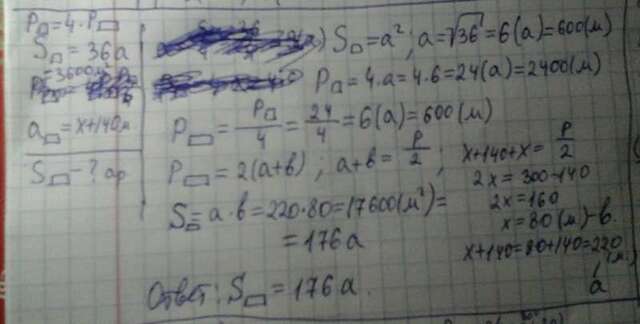 P□ = 4 · P▭
S□ = 36 a
= 3600 м²
a▭ = x+140м
S▭ - ? ар
S□ = a² ; a = √36 = 6(a) = 600(м)
P□ = 4 · a = 4 · 6 = 24(a) = 2400(м)
P▭ = P□/4 = 24/4 = 6(a) = 600(м)
P▭ = 2(a+b) ; a+b = P/2 ;
x+140+x = P/2
2x = 300-140
2x = 160
x = 80(м) - b
x+140 = 80+140 = 220
(м)
a
S▭ = a · b = 220 · 80 = 17600(м²) =
= 176 a
Ответ: S▭ = 176 a.